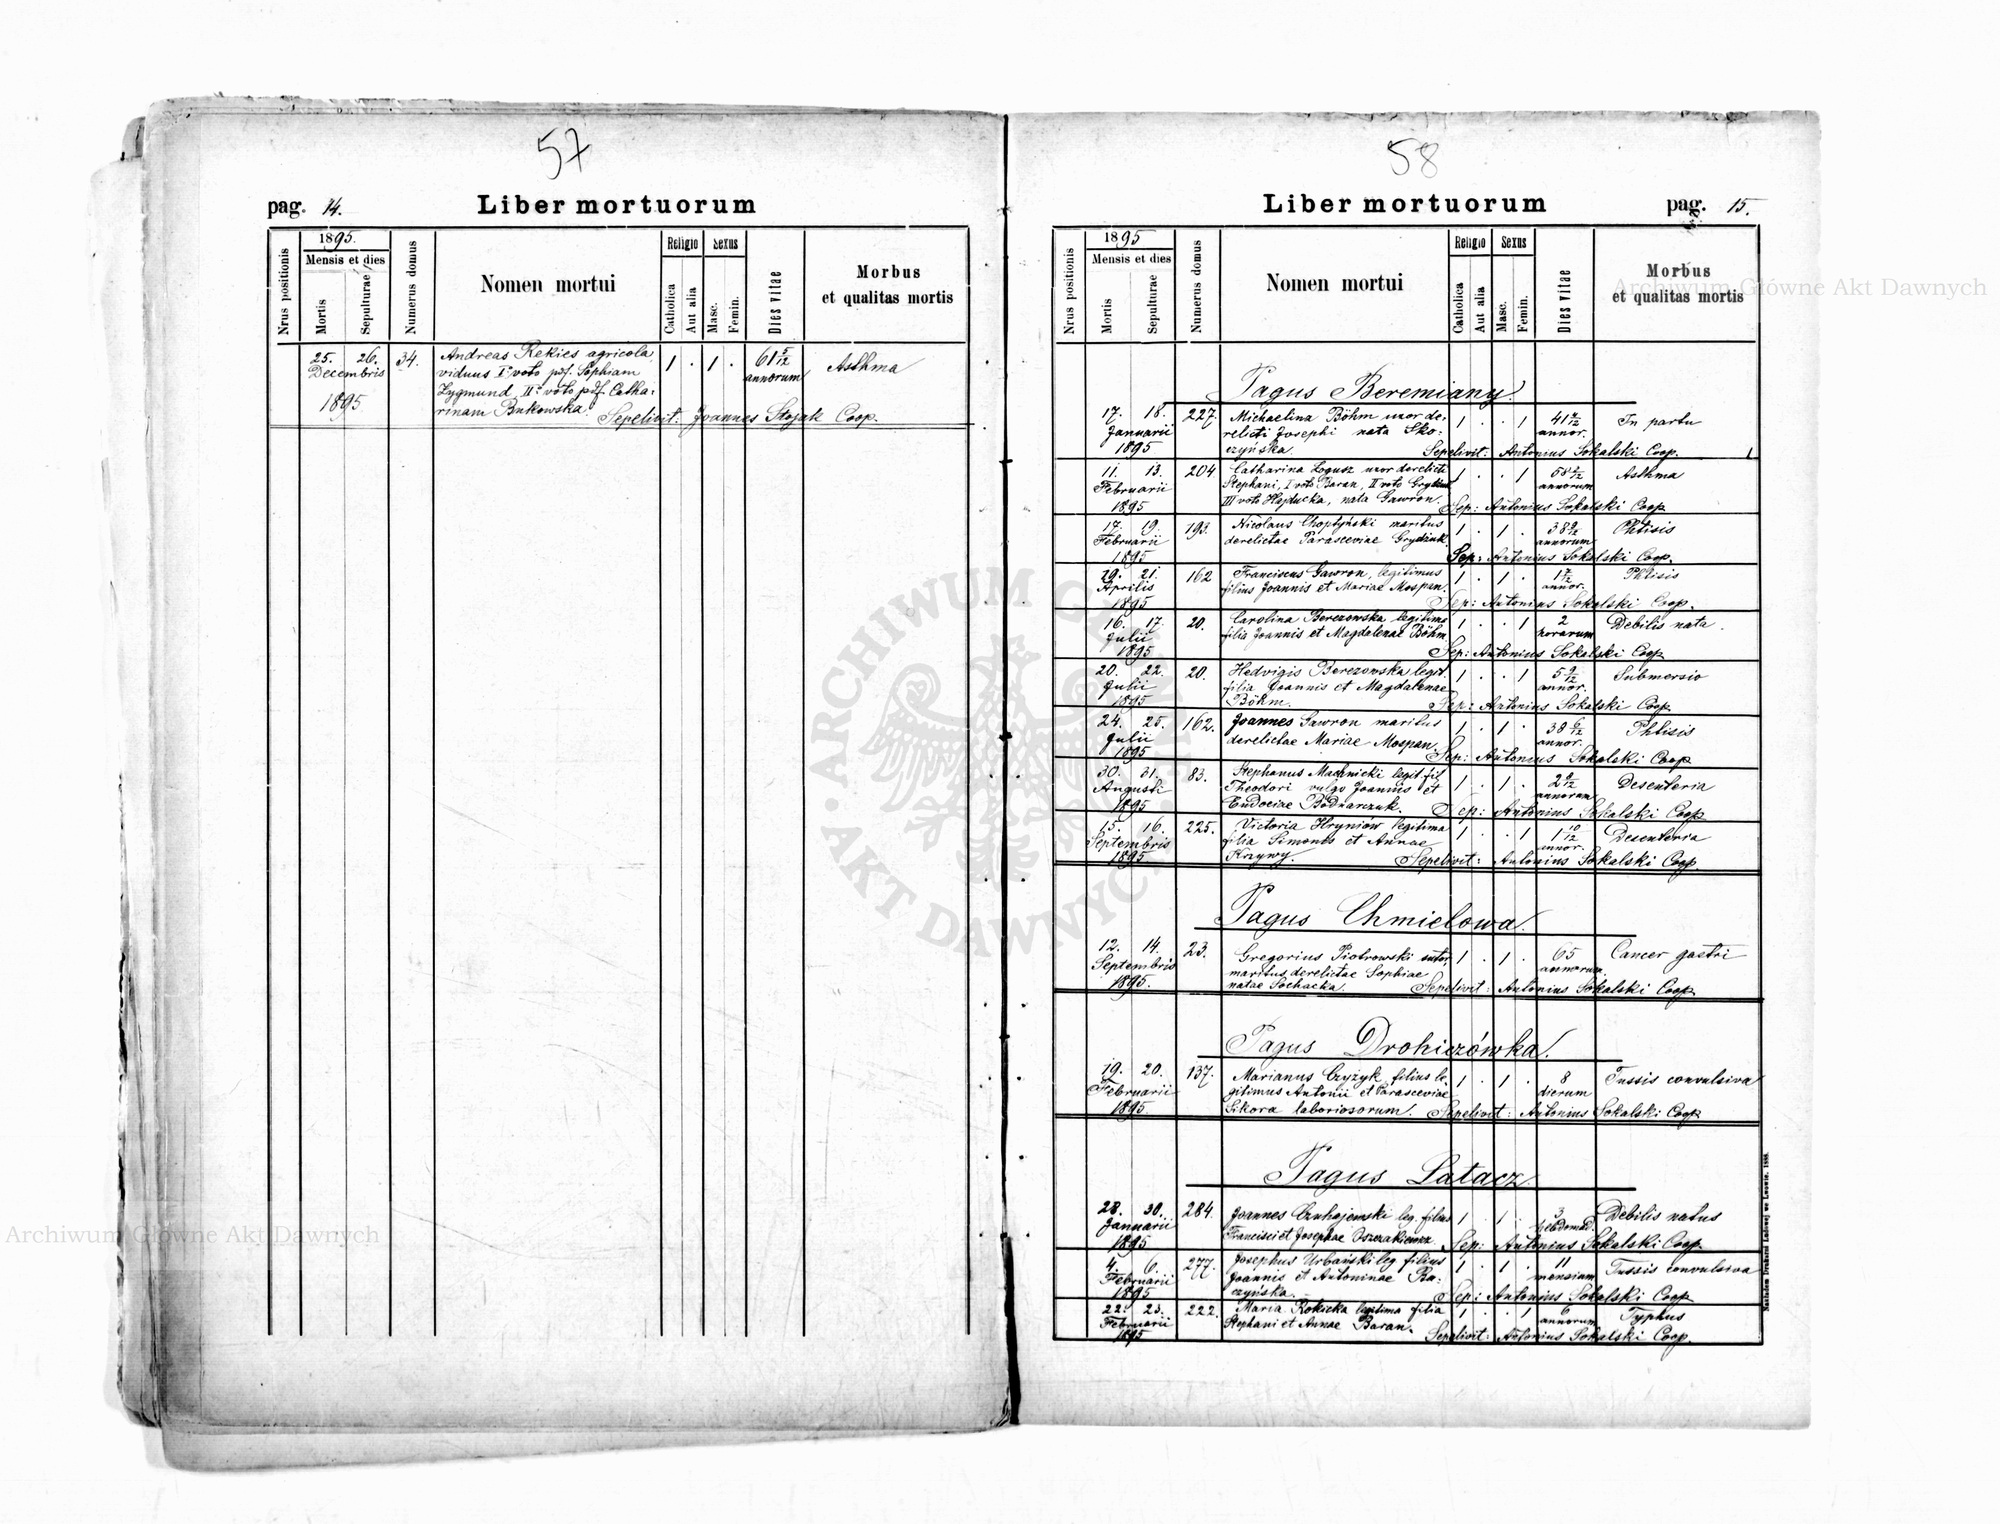 57
pag. 14. Liber mortuorum
Nrus positionis
1895.
Mensis et dies
Mortis
Sepulturae
Numerus domus
Nomen mortui
Religio
Catholica
Aut alia
Sexus
Masc.
Femin.
Dies vitae
Morbus
et qualitas mortis
25. 26. 34. Andreas Rekies agricola, 1 . 1 . 61 5/12 Asthma
Decembris viduus Iº voto pdf. Sophiam annorum
1895 Zygmund, IIº voto pdf. Catha-
rinam Bukowska. Sepelivit: Joannes Stojak Coop.
58
Liber mortuorum pag. 15.
Nrus positionis
1895
Mensis et dies
Mortis
Sepulturae
Numerus domus
Nomen mortui
Religio
Catholica
Aut alia
Sexus
Masc.
Femin.
Dies vitae
Morbus
et qualitas mortis
Pagus Beremiany.
17. 18. 227. Michaelina Böhm uxor de- 1 . . 1 41 In partu
Januarii relicti Josephi nata Sko- annor.
1895 czyńska. Sepelivit: Antonius Sokalski Coop.
11. 13. 204 Catharina Logusz uxor derelicti 1 . . 1 58 Asthma
Februarii Stephani, I voto Baran, II voto annorum
1895 III voto Hajducka, nata Gawron. Sep: Antonius Sokalski Coop.
17. 19. 193. Nicolaus Choptyński maritus 1 . 1 . 38 Phtisis
Februarii derelictae Parasceviae annorum
1895 Sep: Antonius Sokalski Coop.
19. 21. 162 Franciscus Gawron, legitimus 1 . 1 . 1 Phtisis
Aprilis filius Joannis et Mariae Mospan. annor.
1895 Sep: Antonius Sokalski Coop.
16. 17. 20. Carolina Berezowska legitima 1 . . 1 2 Debilis nata.
Julii filia Joannis et Magdalenae Böhm. horarum
1895 Sep: Antonius Sokalski Coop
20. 22. 20. Hedvigis Berezowska legit. 1 . . 1 5 Submersio
Julii filia Joannis et Magdalenae annor.
1895 Böhm. Sep: Antonius Sokalski Coop.
24. 25. 162. Joannes Gawron maritus 1 . 1 . 38 Phtisis
Julii derelictae Mariae Mospan. annor.
1895 Sep: Antonius Sokalski Coop
30. 31. 83. Stephanus legit. fil. 1 . 1 . 2 Desenteria
Augusti Theodori vulgo Joannis et annorum
1895 Eudociae Bodnarczuk. Sep: Antonius Sokalski Coop
15. 16. 225. Victoria Hryniow legitima 1 . . 1 1 10/12 Desenteria
Septembris filia Simonis et Annae annor.
1895 Krzywy. Sepelivit: Antonius Sokalski Coop
Pagus Chmielowa.
12. 14. 23. Gregorius Piotrowski sutor, 1 . 1 . 65 Cancer gastri
Septembris maritus derelictae Sophiae annorum
1895. natae Sochacka. Sepelivit: Antonius Sokalski Coop.
Pagus Drohiczówka.
19. 20. 137. Marianus Czyżyk filius le- 1 . 1 . 8 Tussis convulsiva
Februarii gitimus Antonii et Parasceviae dierum
1895 Sikora laboriosorum. Sepelivit: Antonius Sokalski Coop
Pagus Latacz.
28. 30. 284. Joannes Czuhajewski leg. filius 1 . 1 . 3 Debilis natus
Januarii Francisci et Josephae hebdomad.
1895 Sep: Antonius Sokalski Coop.
4. 6. 277. Josephus Urbański leg. filius 1 . 1 . 11 Tussis convulsiva
Februarii Joannis et Antoninae Ba- mensium
1895 czyńska. Sep: Antonius Sokalski Coop
22. 23. 222. Maria Rokicka legitima filia 1 . . 1 6 Typhus
Februarii Stephani et Annae Baran. annorum
1895 Sepelivit: Antonius Sokalski Coop.
Nakładem Drukarni Ludowej we Lwowie. 1888.
Archiwum Główne Akt Dawnych
Archiwum Główne Akt Dawnych
ARCHIWUM GŁÓWNE AKT DAWNYCH